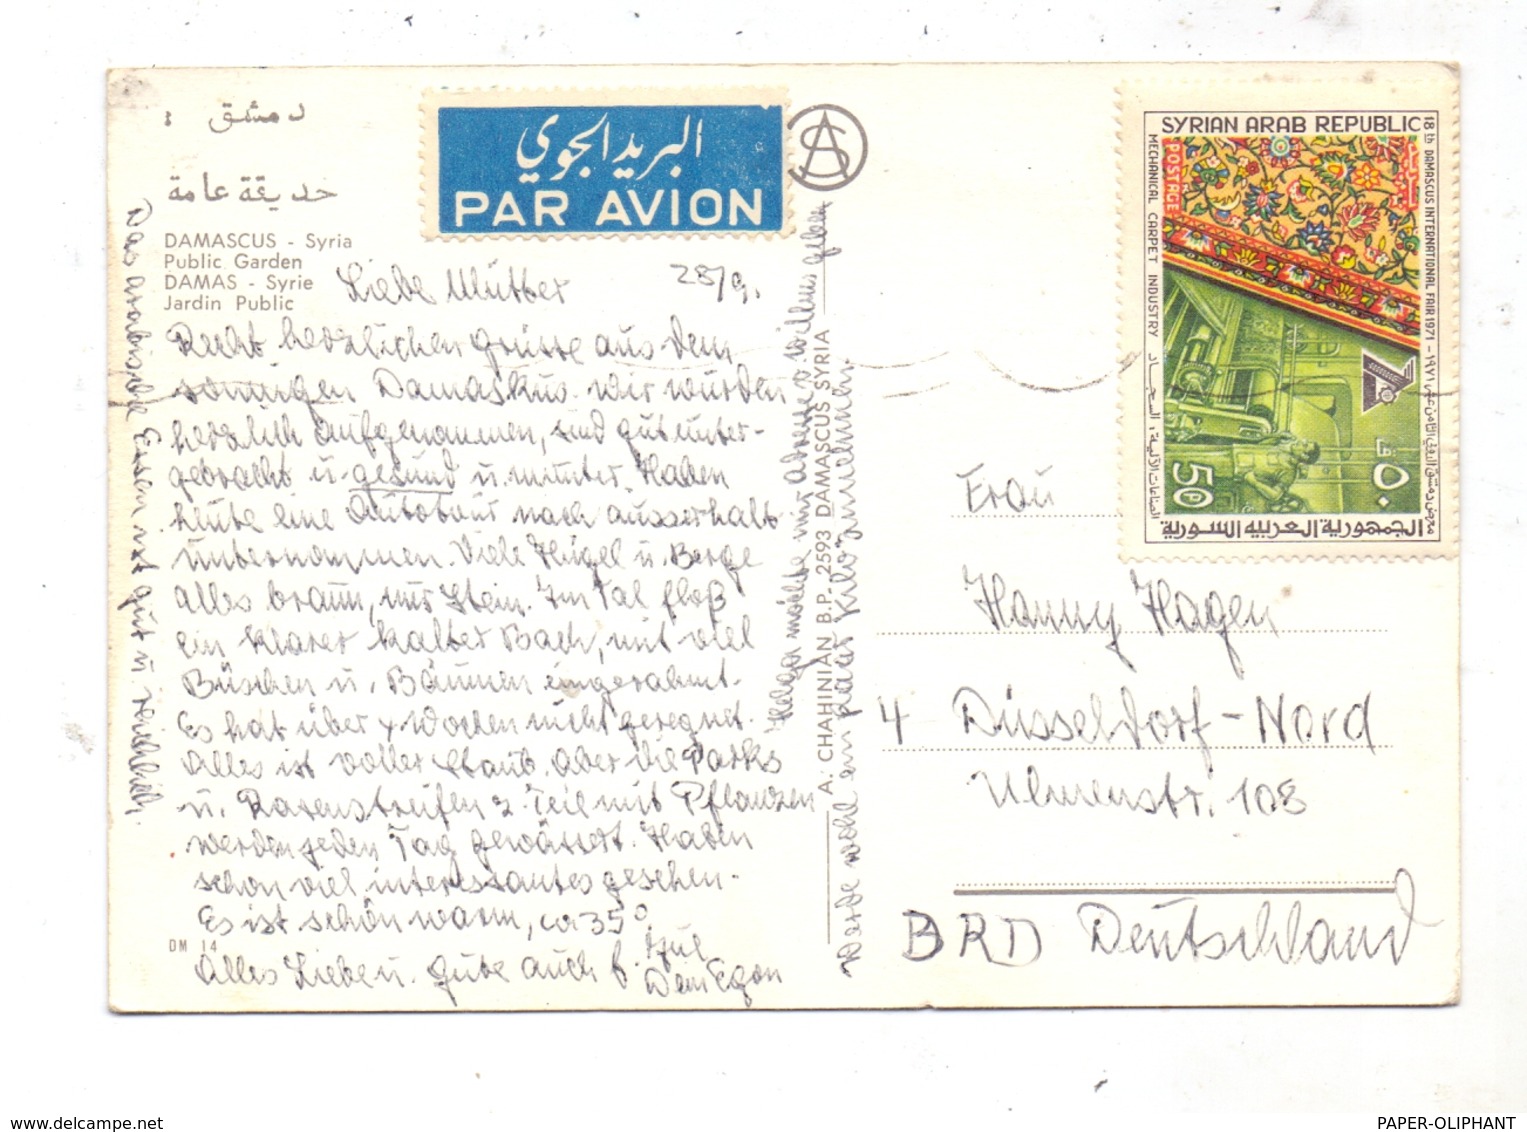 دمشق :
حديقة عامة
DAMASCUS - Syria
Public Garden
DAMAS - Syrie
Jardin Public
البريد الجوي
PAR AVION
AS
28/9.
Liebe Mutter
Recht herzlichen Grüsse aus dem
sonnigen Damaskus. Wir wurden
herzlich aufgenommen, sind gut unter-
gebracht u. gesund u. munter. Haben
heute eine Autotour nach ausserhalb
unternommen. Viele Hügel u. Berge
alles braun, nur Stein. Im Tal floß
ein klarer kalter Bach, mit viel
Büschen u. Bäumen eingerahmt.
Es hat über 4 Wochen nicht geregnet.
Alles ist voller Staub. Aber die Parks
u. Rasenstreifen z. Teil mit Pflanzen
werden jeden Tag gewässert. Haben
schon viel interessantes gesehen.
Es ist schön warm, ca 35°
Alles Liebe u. Gute auch f.
Dein Egon
DM 14
Das arabische Essen ist gut u. reichlich.
Helga möchte mir Adresse willens geben
Werde wohl ein paar Kilo zunehmen
A. CHAHINIAN B.P. 2593 DAMASCUS SYRIA
SYRIAN ARAB REPUBLIC
POSTAGE
بريد
18th DAMASCUS INTERNATIONAL FAIR 1971 - ١٩٧١ معرض دمشق الدولي الثامن عشر
MECHANICAL CARPET INDUSTRY الصناعات الآلية : السجاد
50 P
٥٠
الجمهورية العربية السورية
Frau
Hanny Hagen
4 Düsseldorf-Nord
Ulmenstr. 108
BRD Deutschland
www.delcampe.net
PAPER-OLIPHANT